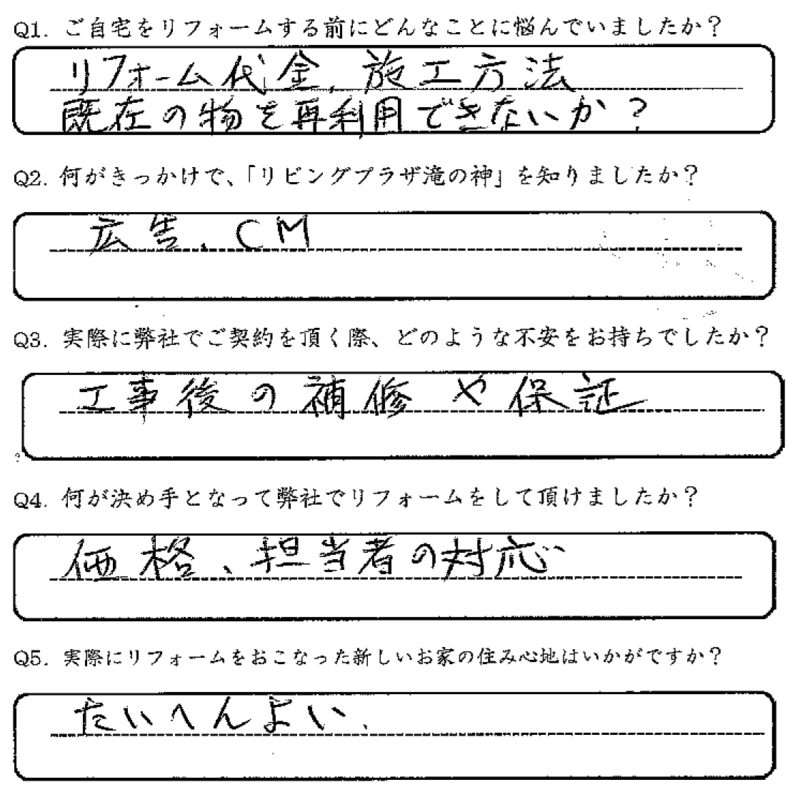 Q1. ご自宅をリフォームする前にどんなことに悩んでいましたか？
リフォーム代金, 施工方法
既在の物を再利用できないか？
Q2. 何がきっかけで、「リビングプラザ滝の神」を知りましたか？
広告、CM
Q3. 実際に弊社でご契約を頂く際、どのような不安をお持ちでしたか？
工事後の補修や保証
Q4. 何が決め手となって弊社でリフォームをして頂けましたか？
価格、担当者の対応
Q5. 実際にリフォームをおこなった新しいお家の住み心地はいかがですか？
たいへんよい.